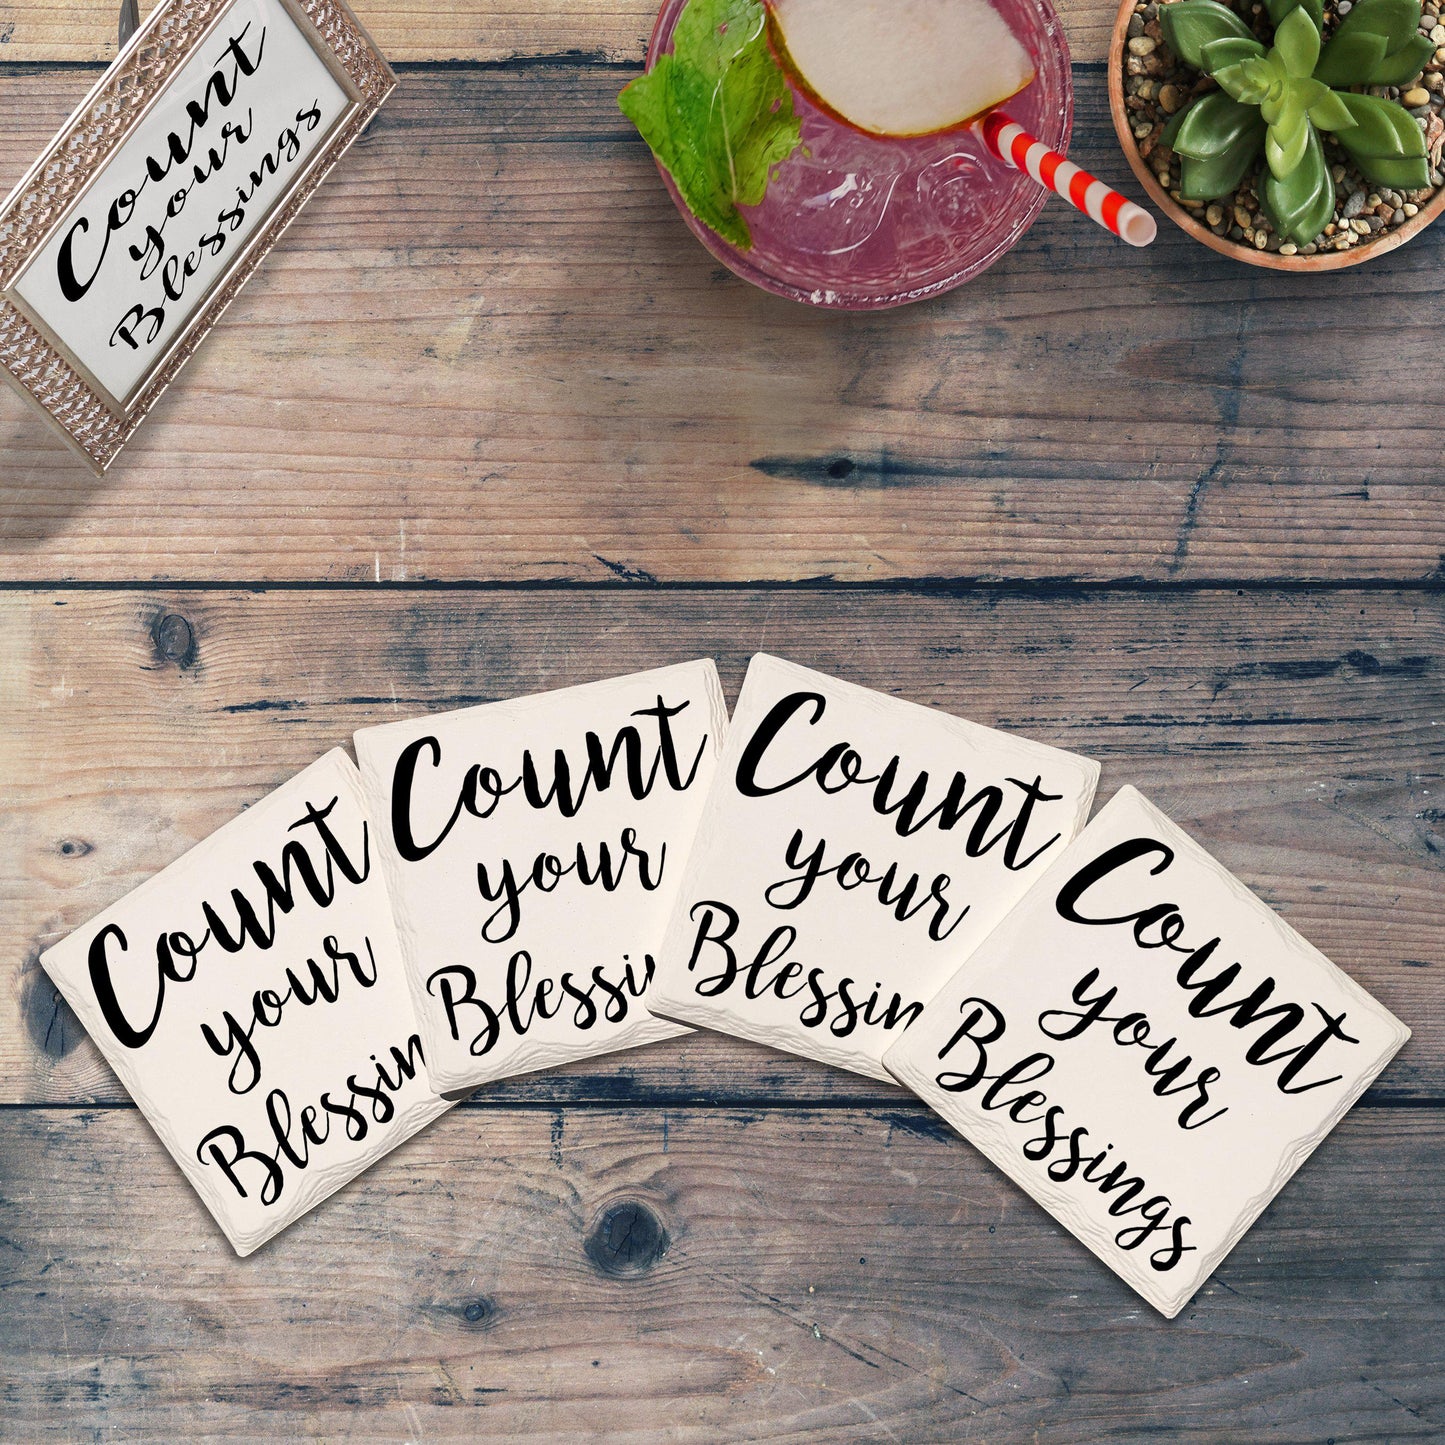 Count
your
Blessings
Count
your
Blessin
Count
your
Blessin
Count
your
Blessin
Count
your
Blessings